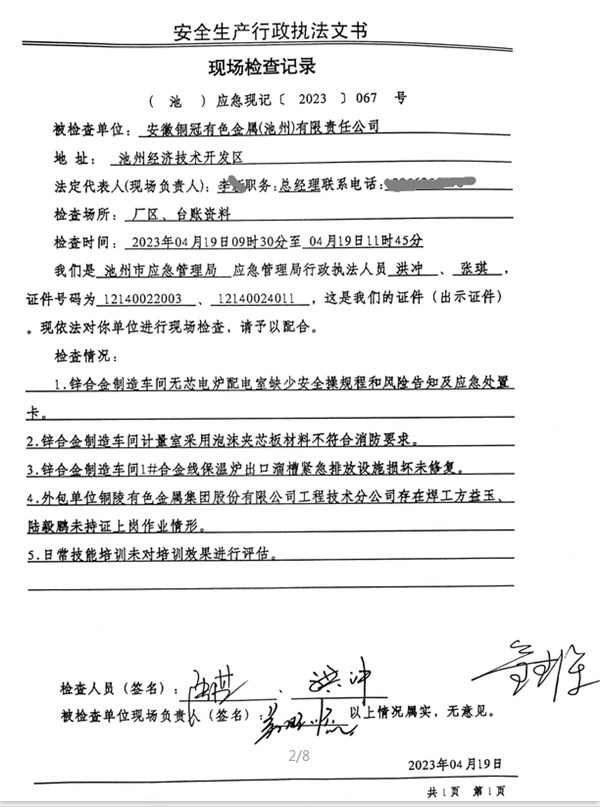 安全生产行政执法文书
现场检查记录
（ 池 ）应急现记〔 2023 〕067 号
被检查单位：安徽铜冠有色金属(池州)有限责任公司
地 址： 池州经济技术开发区
法定代表人(现场负责人)：李 职务：总经理联系电话：
检查场所： 厂区、台账资料
检查时间： 2023年04月19日09时30分至 04月19日11时45分
我们是 池州市应急管理局 应急管理局行政执法人员 洪冲 、 张琪 ，
证件号码为 12140022003 、 12140024011 ，这是我们的证件（出示证件）
。现依法对你单位进行现场检查，请予以配合。
检查情况：
1.锌合金制造车间无芯电炉配电室缺少安全操规程和风险告知及应急处置
卡。
2.锌合金制造车间计量室采用泡沫夹芯板材料不符合消防要求。
3.锌合金制造车间1#合金线保温炉出口溜槽紧急排放设施损坏未修复。
4.外包单位铜陵有色金属集团股份有限公司工程技术分公司存在焊工方益玉、
陆毅鹏未持证上岗作业情形。
5.日常技能培训未对培训效果进行评估。
检查人员（签名）： 、 洪冲
被检查单位现场负责人（签名）： 以上情况属实，无意见。
2/8
2023年04月19日
共1页 第1页